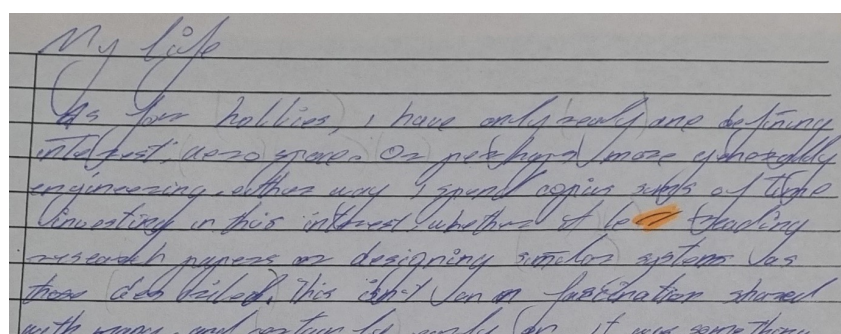 My life
As for hobbies, i have only really one defining
interest; aero space. Or perhaps more generally
engineering. either way i spend copius sums of time
investing in this interest. whether it be reading
research papers or designing similar systems as
those described. This isn't an fascination shared
with many, and certainly early on it was something